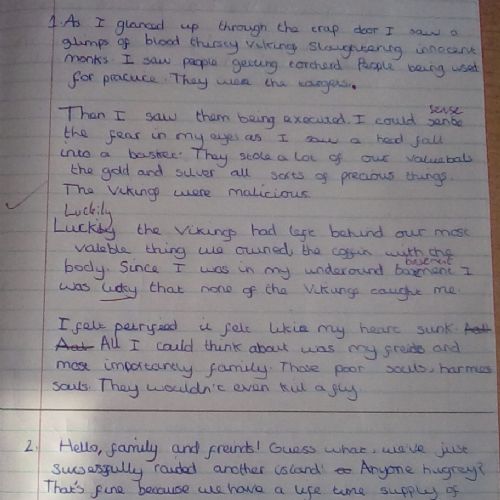 1. As I glanced up through the trap door I saw a
glimps of blood thirsty vikings slaughtering innocent
monks. I saw people getting torcherd. People being used
for practice. They were the targets.
Then I saw them being executed. I could sense
the fear in my eyes as I saw a head fall
into a basket. They stole a lot of our valuebals
the gold and silver all sorts of precious things.
The Vikings were malicious.
Luckily
Luckily the Vikings had left behind our most
valeble thing we owned, the coffin with the
body. Since I was in my underound basement I
was lucky that none of the Vikings caught me.
I felt petryfied it felt likie my heart sunk.
All I could think about was my freids and
most importantly family. Those poor souls, harmles
souls. They wouldn't even kill a fly.
2. Hello, family and freints! Guess what, we've just
sucsessfully raided another island! Anyone hugrey?
That's fine because we have a life time supply of